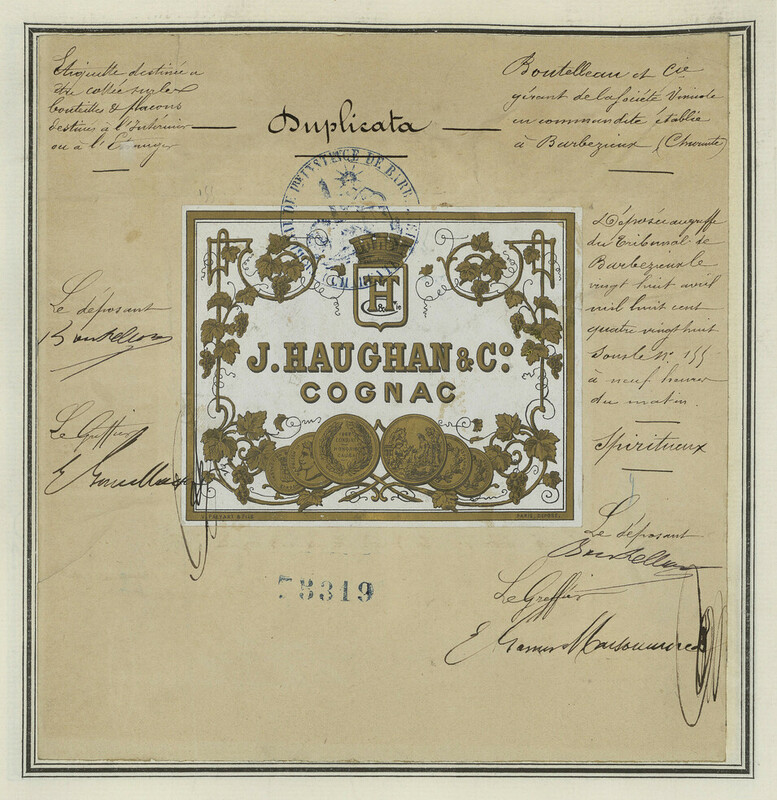 Etiquette destinée a
être collée sur les
bouteilles & flacons
destinés à l'Intérieur
ou à l'Etranger
Duplicata
Boutelleau et Cie
gérant de la Société Vinicole
en commandite établie
à Barbezieux (Charente)
155
DE 1RE INSTANCE DE BARB
H
& Cie
J. HAUGHAN & Co.
COGNAC
PARIS, DEPOSÉ.
Déposée au greffe
du Tribunal de
Barbezieux le
vingt huit avril
mil huit cent
quatre vingt huit
sous le No. 155
à neuf heures
du matin.
Spiritueux
Le déposant
Boutelleau
Le Greffier
Le déposant
Boutelleau
Le Greffier
78319